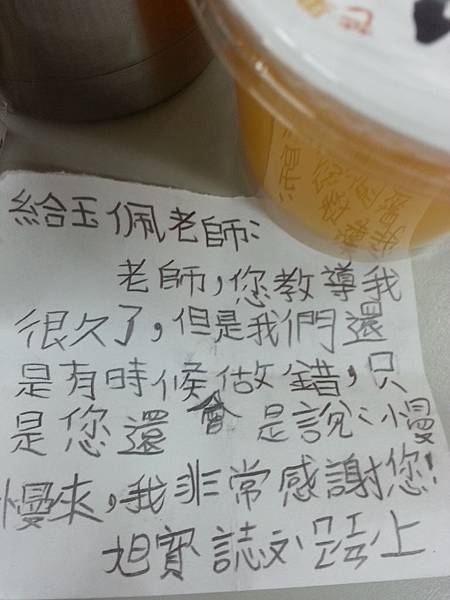 給玉佩老師:
老師,您教導我
很久了,但是我們還
是有時候做錯,只
是您還會是說:慢
慢來,我非常感謝您!
上